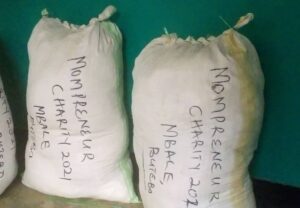 MOMPRENEUR
CHARITY 2021
MBALE
MOMPRENEUR
CHARITY 202
MBALE,